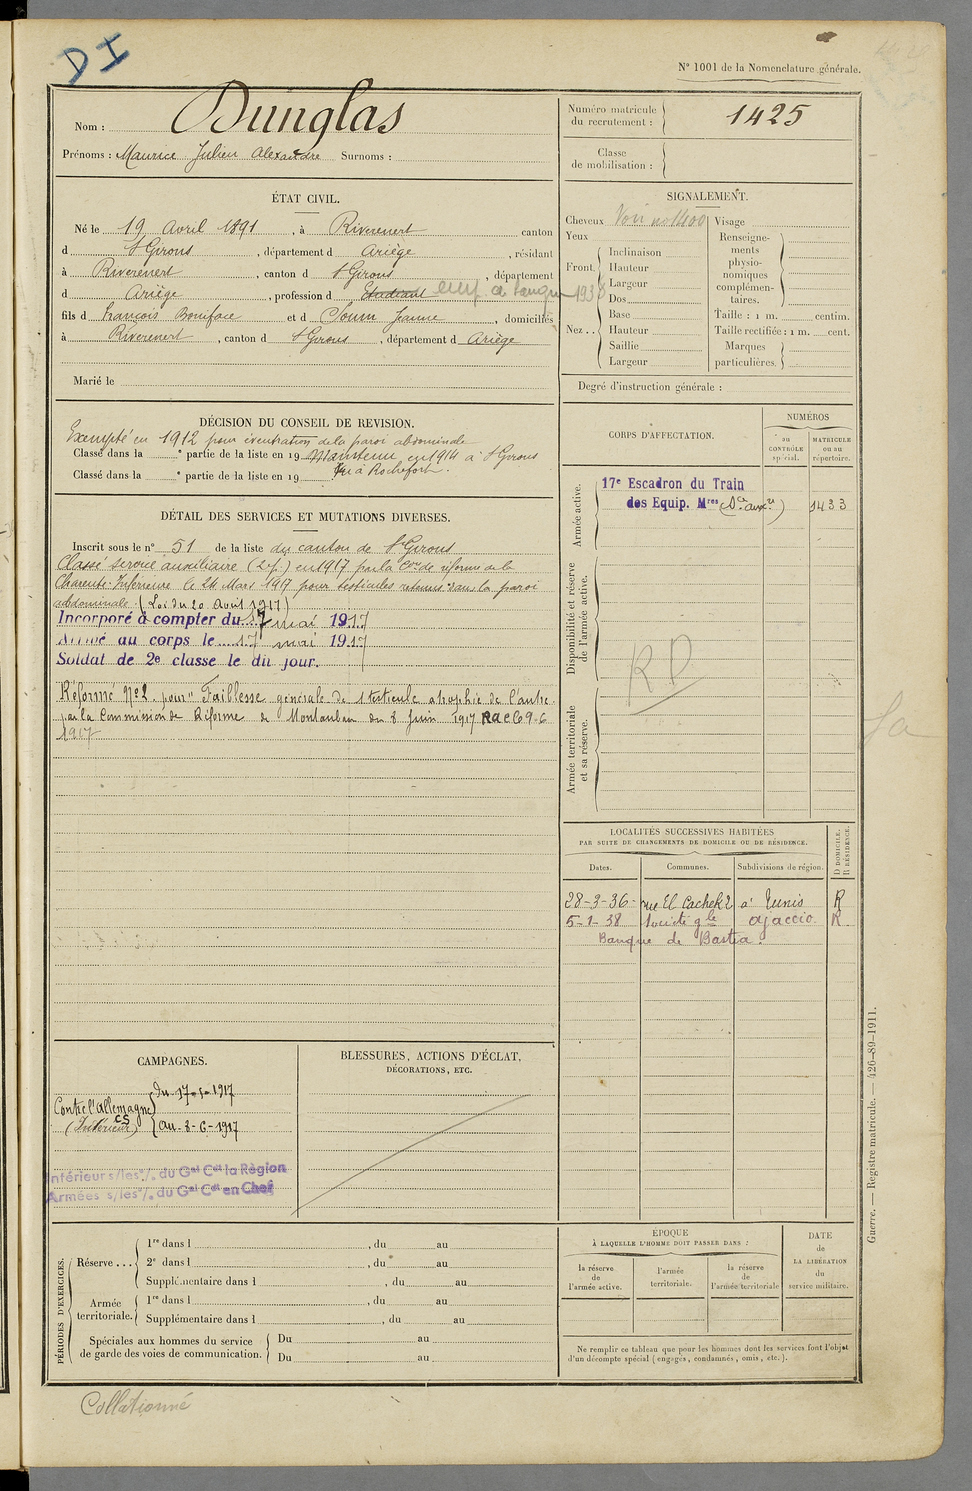 DI
N° 1001 de la Nomenclature générale.
Nom : Dunglas
Prénoms : Maurice Julien Alexandre Surnoms :
Numéro matricule du recrutement : 1425
Classe de mobilisation :
ÉTAT CIVIL.
Né le 19 Avril 1891, à Riverenert canton
d St Girons, département d Ariège, résidant
à Riverenert, canton d St Girons, département
d Ariège, profession d Etudiant
fils d François Boniface et d Soum Jeanne, domiciliés
à Riverenert, canton d St Girons, département d Ariège
Marié le
SIGNALEMENT.
Cheveux
Yeux
Front
Inclinaison
Hauteur
Largeur
Nez
Dos
Base
Hauteur
Saillie
Largeur
Visage
Renseignements physionomiques complémentaires.
Taille : 1 m. centim.
Taille rectifiée : 1 m. cent.
Marques particulières.
Degré d'instruction générale :
DÉCISION DU CONSEIL DE REVISION.
Exempté en 1912 pour éventration de la paroi abdominale
Classé dans la e partie de la liste en 19 Maintenu en 1914 à St Girons
Classé dans la e partie de la liste en 19 Vu à Rochefort.
DÉTAIL DES SERVICES ET MUTATIONS DIVERSES.
Inscrit sous le n° 51 de la liste du canton de St Girons
Classé service auxiliaire (2e p.) en 1917 par la Con de réforme de la
Charente-Inférieure le 24 Mars 1917 pour testicules retenus dans la paroi
abdominale. (Loi du 20 Août 1917)
Incorporé à compter du 17 mai 1917
Arrivé au corps le 17 mai 1917
Soldat de 2e classe le dit jour.
Réformé N° 2 pour "Faiblesse générale de 1 testicule atrophie de l'autre
par la Commission de Réforme de Montauban du 8 Juin 1917 RAC 69-6
1917
CORPS D'AFFECTATION.
NUMÉROS
au CONTRÔLE spécial.
MATRICULE ou au répertoire.
Armée active.
17e Escadron du Train
des Equip. Mres (Sce auxre) 1433
Disponibilité et réserve de l'armée active.
RD
Armée territoriale et sa réserve.
LOCALITÉS SUCCESSIVES HABITÉES
PAR SUITE DE CHANGEMENTS DE DOMICILE OU DE RÉSIDENCE.
Dates. Communes. Subdivisions de région. D DOMICILE. R RÉSIDENCE.
28-3-36- rue El Cachek 2 à Tunis R
5-1-38 Société gle Ajaccio R
Banque de Bastia.
CAMPAGNES.
Contre l'Allemagne
(Intérieur) CS
du 17-5-1917
au 8-6-1917
Intérieur s/les o/. du Gal Cdt la Règion
Armées s/les o/. du Gal Cdt en Chef
BLESSURES, ACTIONS D'ÉCLAT,
DÉCORATIONS, ETC.
PÉRIODES D'EXERCICES.
Réserve ... 1re dans l , du au
2e dans l , du au
Supplémentaire dans l , du au
Armée territoriale. 1re dans l , du au
Supplémentaire dans l , du au
Spéciales aux hommes du service de garde des voies de communication. Du au
Du au
ÉPOQUE
À LAQUELLE L'HOMME DOIT PASSER DANS :
la réserve de l'armée active.
l'armée territoriale.
la réserve de l'armée territoriale
DATE de LA LIBÉRATION du service militaire.
Ne remplir ce tableau que pour les hommes dont les services font l'objet
d'un décompte spécial (engagés, condamnés, omis, etc.).
Guerre. — Registre matricule. — 426-89-1911.
Collationné